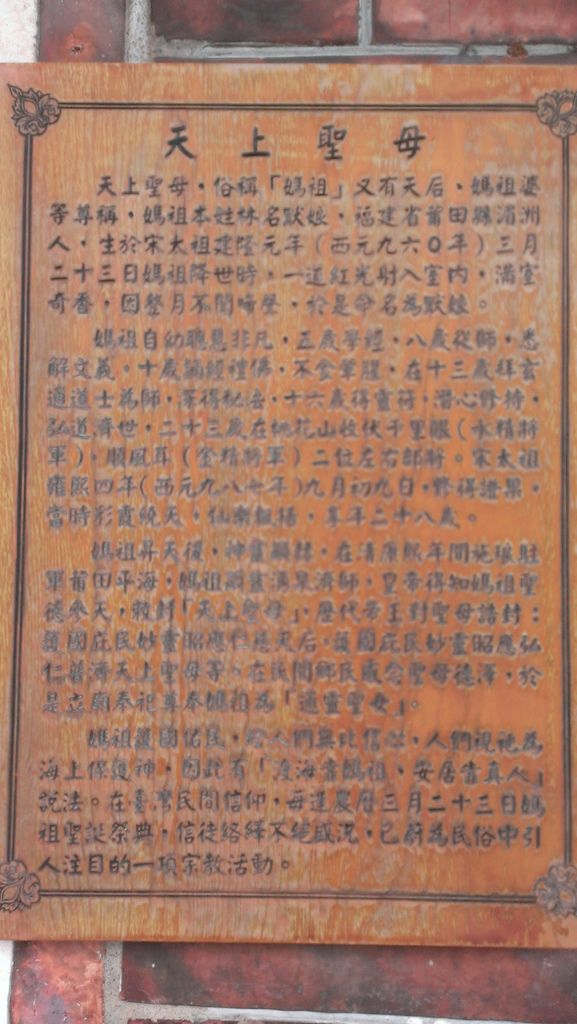 天上聖母
天上聖母，俗稱「媽祖」又有天后、媽祖婆
等尊稱，媽祖本姓林名默娘，福建省莆田縣湄洲
人，生於宋太祖建隆元年（西元九六０年）三月
二十三日媽祖降世時，一道紅光射入室內，滿室
奇香，因整月不聞啼聲，於是命名為默娘。
媽祖自幼聰慧非凡，五歲學經，八歲從師，悉
解文義。十歲誦經禮佛，不食葷腥，在十三歲拜玄
通道士為師，得秘法，十六歲得靈符，潛心修持，
弘道濟世，二十三歲在桃花山收伏千里眼（水精將
軍），順風耳（金精將軍）二位左右部將。宋太祖
雍熙四年（西元九八七年）九月初九日，修得證果，
當時彩霞繞天，仙樂飄揚，享年二十八歲。
媽祖昇天後，神靈顯赫，在清康熙年間施琅駐
軍莆田平海，媽祖顯靈湧泉濟師，皇帝得知媽祖聖
德參天，敕封「天上聖母」，歷代帝王對聖母誥封：
護國庇民妙靈昭應仁慈天后，護國庇民妙靈昭應弘
仁普濟天上聖母等。在民間鄉民感念聖母德澤，於
是立廟奉祀尊奉媽祖為「通靈聖母」。
媽祖護國佑民，給人們無比信心，人們視祂為
海上保護神，因此有「渡海靠媽祖，安居靠真人」
說法。在臺灣民間信仰，每逢農曆三月二十三日媽
祖聖誕祭典，信徒絡繹不絕盛況，已蔚為民俗中引
人注目的一項宗教活動。